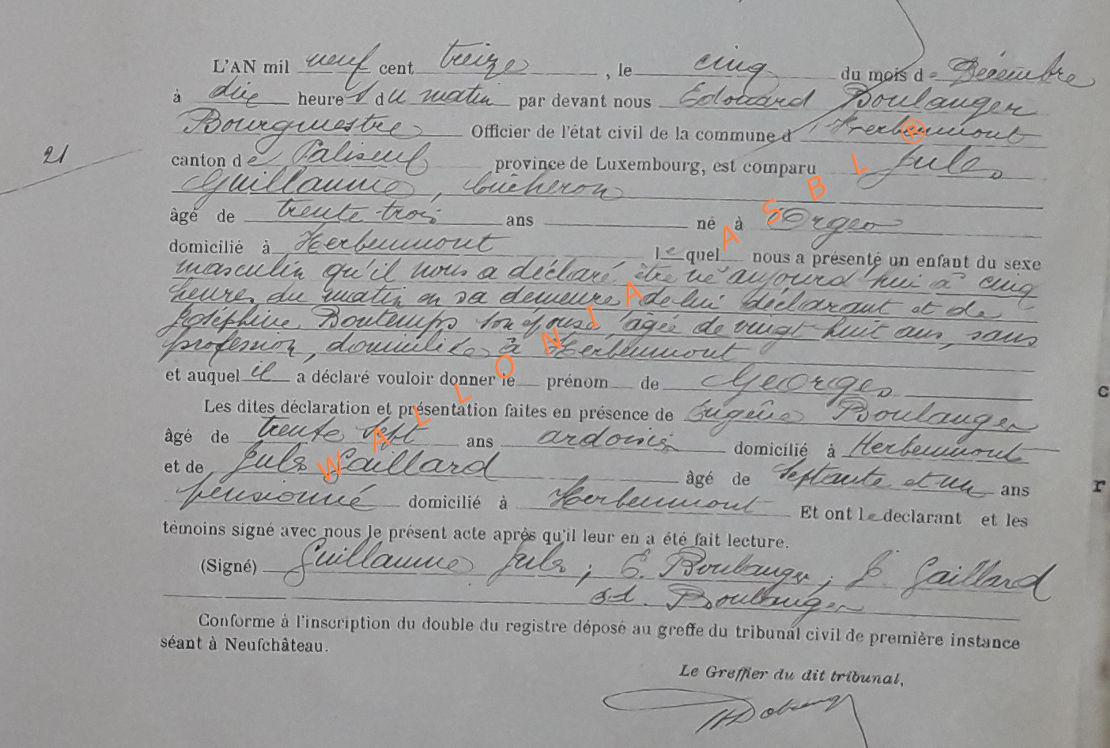 L'AN mil neuf cent treize, le cinq du mois de Décembre
à dix heures du matin par devant nous Edouard Boulanger
Bourgmestre Officier de l'état civil de la commune d'Herbeumont
21
canton de Paliseul province de Luxembourg, est comparu Jules
Guillaume, bûcheron
âgé de trente trois ans né à Orgeo
domicilié à Herbeumont lequel nous a présenté un enfant du sexe
masculin qu'il nous a déclaré être né aujourd'hui à cinq
heures du matin en sa demeure de lui déclarant et de
Joséphine Bontemps son épouse, âgée de vingt huit ans, sans
profession, domiciliée à Herbeumont
et auquel il a déclaré vouloir donner le prénom de Georges
Les dites déclaration et présentation faites en présence de Eugène Boulanger
âgé de trente sept ans ardoisier domicilié à Herbeumont
et de Jules Gaillard âgé de septante et un ans
pensionné domicilié à Herbeumont Et ont le declarant et les
témoins signé avec nous le présent acte après qu'il leur en a été fait lecture.
(Signé) Guillaume Jules; E. Boulanger; J. Gaillard
Ed. Boulanger
Conforme à l'inscription du double du registre déposé au greffe du tribunal civil de première instance
séant à Neufchâteau.
Le Greffier du dit tribunal,
WALLONIA ASBL ®
c
r